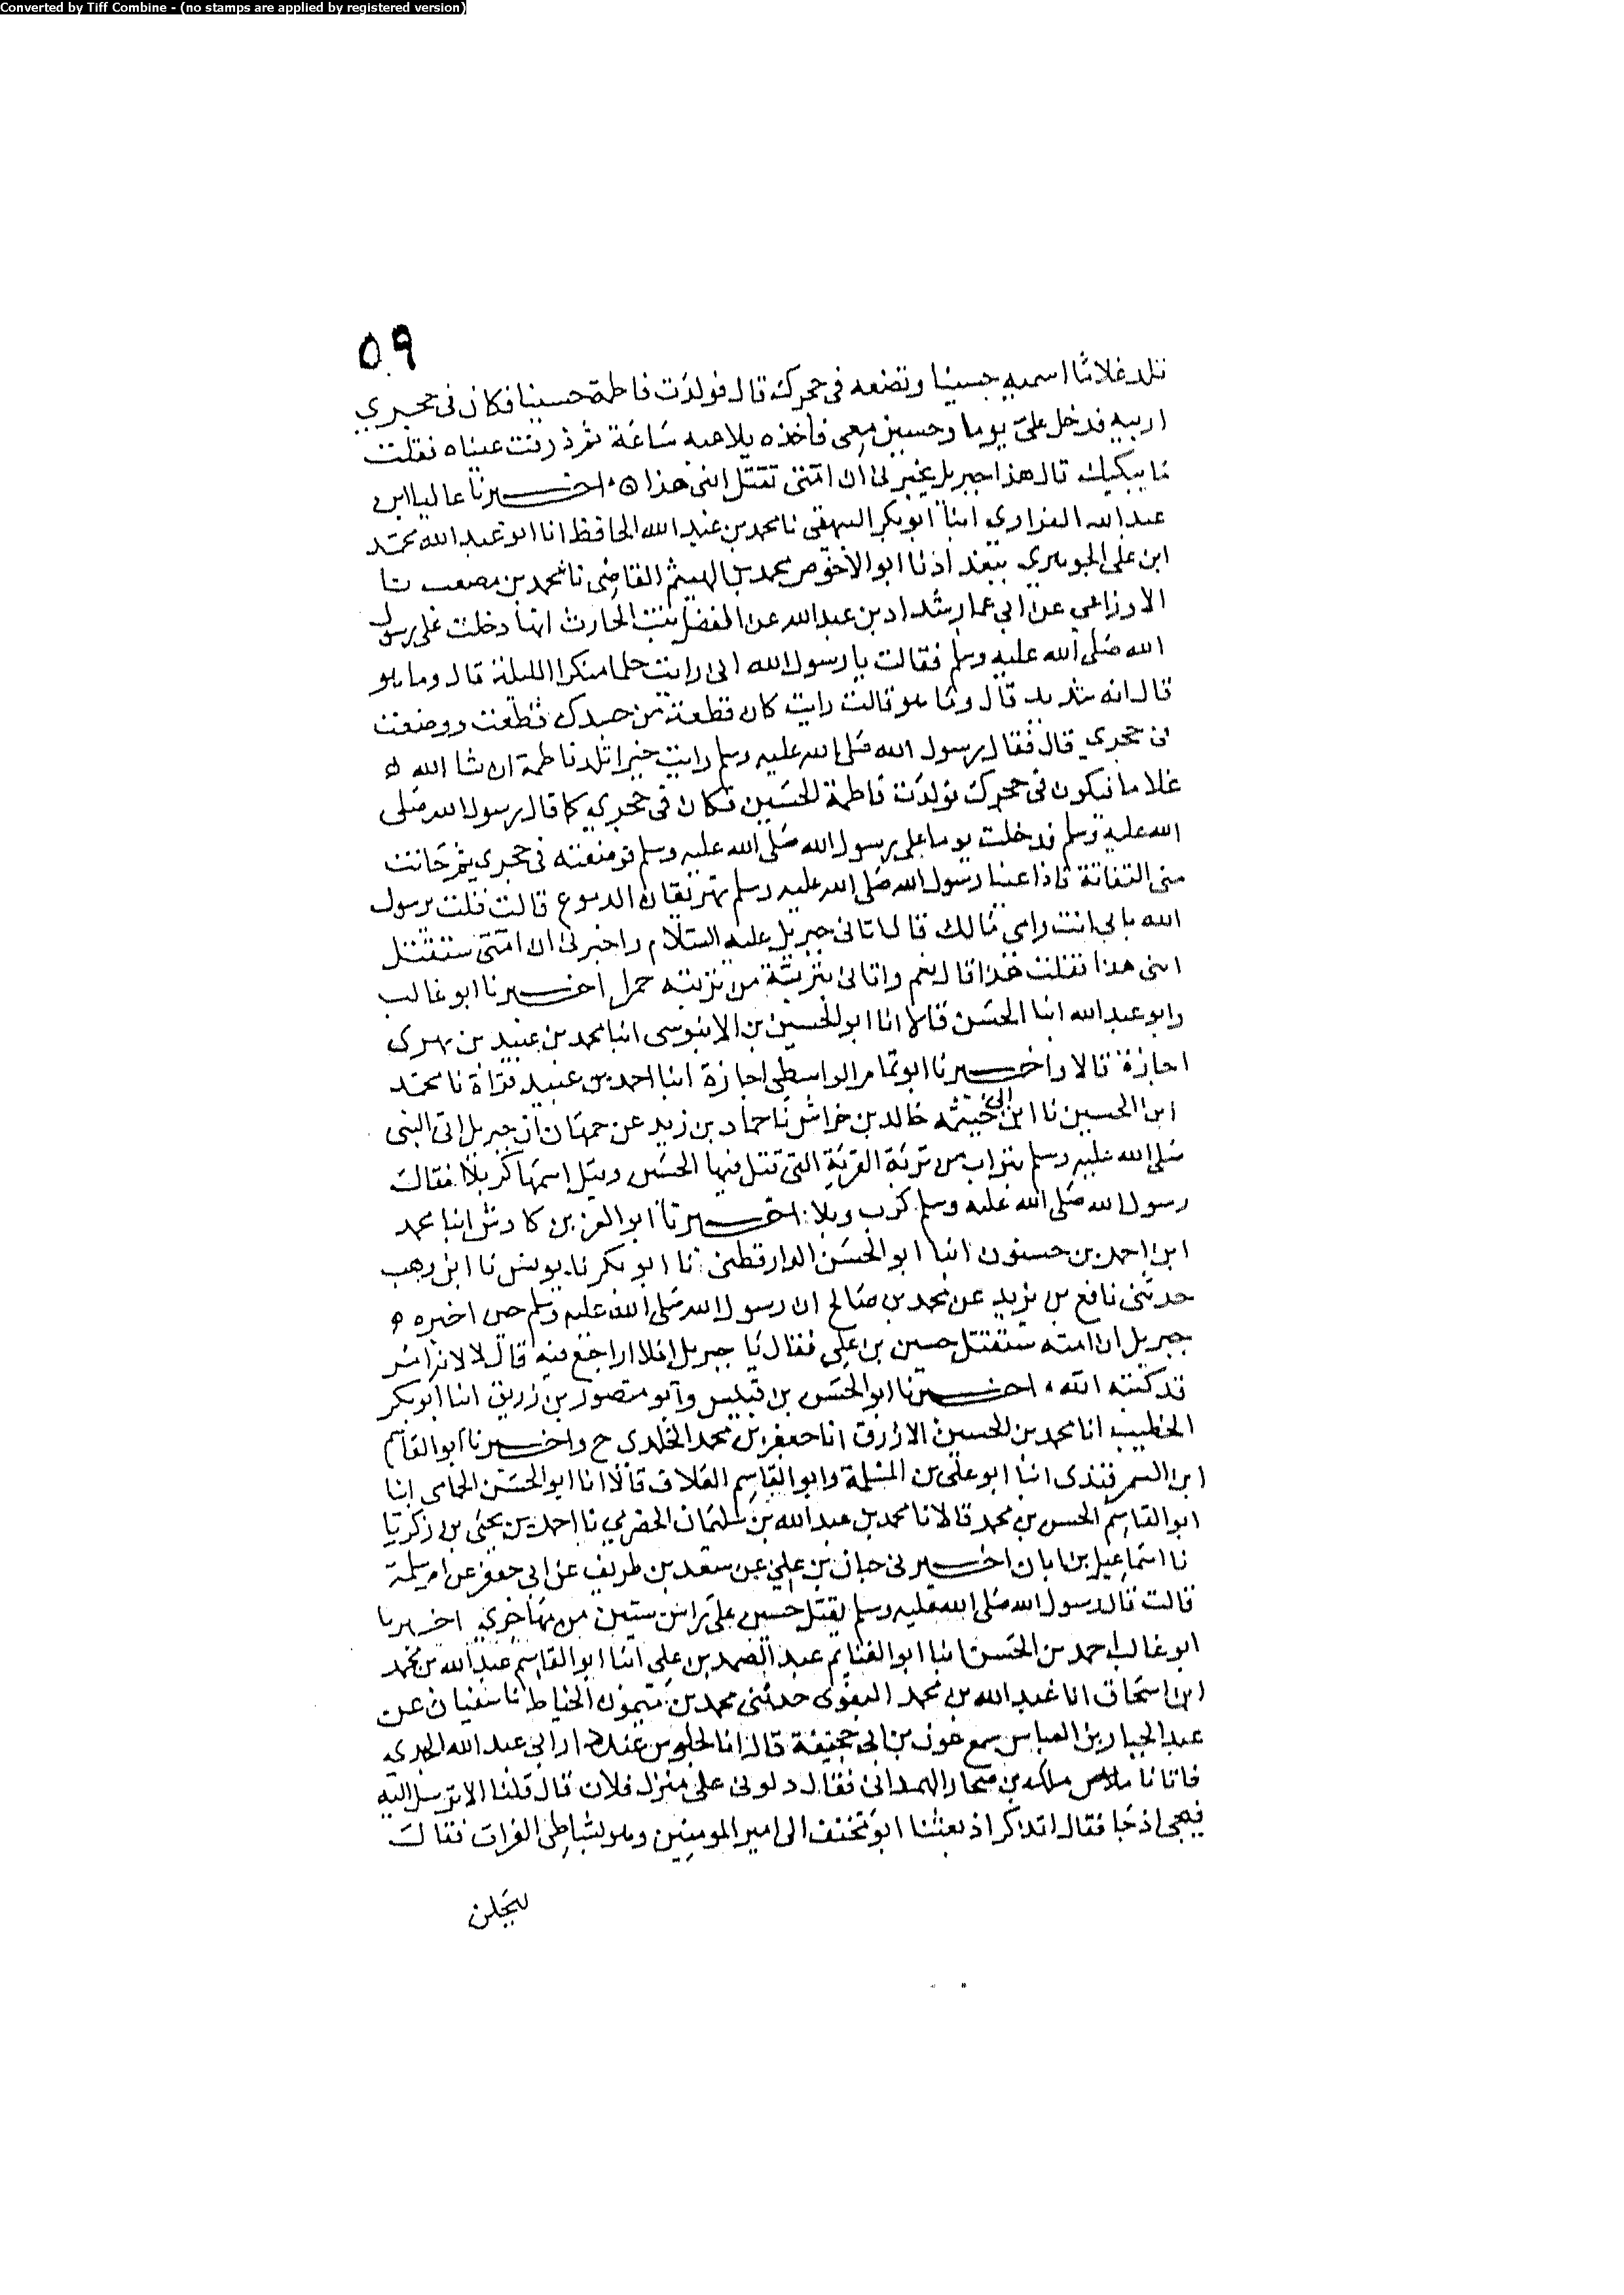 Converted by Tiff Combine - (no stamps are applied by registered version)
٥٩
تلد غلاما اسميه حسينا وتضعه فى حجرك قال فولدت فاطمة حسينا فكان فى حجري
اربيه فدخل علىّ يوما وحسين معى فاخذه يلاعبه ساعة ثم ذرفت عيناه فقلت
ما يبكيك قال هذا جبريل يخبرنى ان امتى تقتل ابنى هذا ه اخبرنا عاليا ابن
عبد الله الفراوي انبا ابو بكر البيهقى نا محمد بن عبد الله الحافظ انا ابو عبد الله محمد
ابن على الجوهري ببغداد نا ابو الاخوص محمد بن الهيثم القاضى نا محمد بن مصعب نا
الاوزاعي عن ابي عمار شداد بن عبد الله عن الفضل بنت الحارث انها دخلت على رسول
الله صلى الله عليه وسلم فقالت يا رسول الله انى رايت حلما منكرا الليلة قال وما هو
قال انه شديد قال وما هو قالت رايت كان قطعة من جسدك قطعت ووضعت
فى حجري قال فقال رسول الله صلى الله عليه وسلم رايت خيرا تلد فاطمة ان شا الله ه
غلاما فيكون فى حجرك فولدت فاطمة الحسين فكان فى حجري كما قال رسول الله صلى
الله عليه وسلم فدخلت يوما على رسول الله صلى الله عليه وسلم فوضعته فى حجرى ثم حانت
منى التفاتة فاذا عينا رسول الله صلى الله عليه وسلم تهريقان الدموع قالت قلت يرسول
الله بابي انت وامى مالك قال اتانى جبريل عليه السلام واخبرنى ان امتى ستقتل
ابنى هذا فقلت هذا قال نعم واتانى بتربة من تربته حمرا اخبرنا ابو غالب
وابو عبد الله ابنا الحسن قالا انا ابو الحسين بن الابنوسى انبا محمد بن عبيد بن بيرى
اجازة قالا واخبرنا ابو تمام الواسطى اجازة انبا احمد بن عبيد قراة نا محمد
ابن الحسين نا ابن ابى خيثمه خالد بن خراش نا حماد بن زيد عن جمهان ان جبريل اتى النبى
صلى الله عليه وسلم بتراب من تربة القرية التى قتل فيها الحسين وقيل اسمها كربلا فقال
رسول الله صلى الله عليه وسلم كرب وبلا اخبرنا ابو العز بن كادش انبا محمد
ابن احمد بن حسنون انبا ابو الحسن الدارقطنى نا ابو بكر نا يونس نا ابن وهب
حدثنى نافع بن يزيد عن محمد بن صالح ان رسول الله صلى الله عليه وسلم حين اخبره ه
جبريل ان امته ستقتل حسين بن على فقال يا جبريل افلا اراجع فيه قال لا لانه امر
قد كتبه الله اخبرنا ابو الحسن بن قبيس وابو منصور بن زريق انبا ابو بكر
الخطيب انا محمد بن الحسين الازرق انا جعفر بن محمد الخلدى ح واخبرنا ابو القاسم
ابن السمرقندى انبا ابو على بن المسلمة وابو القاسم العلاف قالا انا ابو الحسن الحمامى انبا
ابو القاسم الحسن بن محمد قالا نا محمد بن عبد الله بن سليمان الحضرمي نا احمد بن يحيى بن زكريا
نا اسماعيل بن ابان اخبرنى حبان بن على عن سعد بن طريف عن ابى جعفر عن ام سلمة
قالت قال رسول الله صلى الله عليه وسلم يقتل حسين على راس ستين من مهاجري اخبرنا
ابو غالب احمد بن الحسن انبا ابو الغنايم عبد الصمد بن على انبا ابو القاسم عبد الله بن محمد
ابن اسحاق انا عبد الله بن محمد البغوى حدثنى محمد بن ميمون الخياط نا سفيان عن
عبد الجبار بن العباس سمع عون بن ابى جحيفة قال انا لجلوس عند دار ابى عبد الله الجدلي
فاتانا ملك بن صحار الهمدانى فقال دلونى على منزل فلان قال قلنا الا ترسل اليه
فيجى اذ جا فقال اتذكر اذ بعثنا ابو مخنف الى امير المومنين وهو بشاطى الفرات فقال
ليحلن